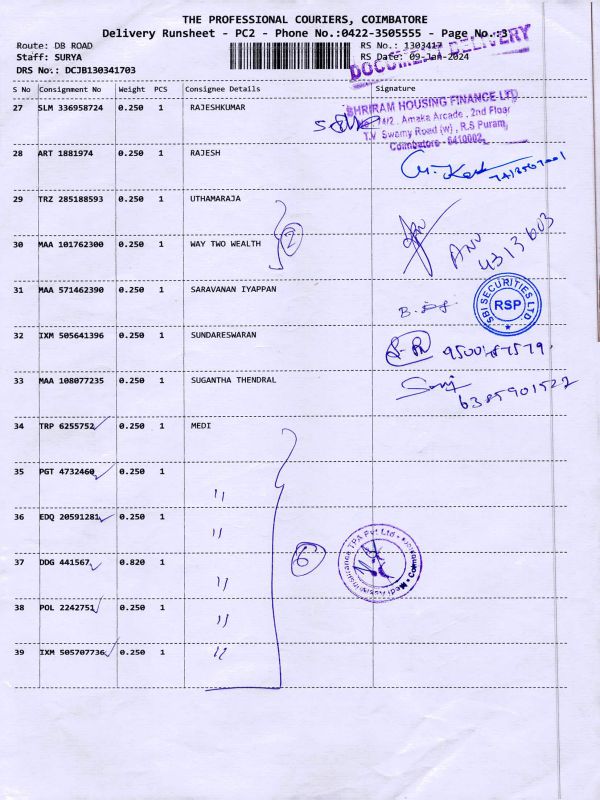 THE PROFESSIONAL COURIERS, COIMBATORE
Delivery Runsheet - PC2 - Phone No.:0422-3505555 - Page No.:3
Route: DB ROAD
RS No.: 1303417
Staff: SURYA
RS Date: 09-Jan-2024
DRS No.: DCJB130341703
DOCUMENT DELIVERY
S No Consignment No Weight PCS Consignee Details Signature
27 SLM 336958724 0.250 1 RAJESHKUMAR
SHRIRAM HOUSING FINANCE LTD
74/2, Amaka Arcade, 2nd Floor
T.V Swamy Road (w), R.S Puram,
Coimbatore - 6410002.
28 ART 1881974 0.250 1 RAJESH
29 TRZ 285188593 0.250 1 UTHAMARAJA
2
30 MAA 101762300 0.250 1 WAY TWO WEALTH
ANU
4313603
31 MAA 571462390 0.250 1 SARAVANAN IYAPPAN
SBI SECURITIES LTD.
RSP
32 IXM 505641396 0.250 1 SUNDARESWARAN
33 MAA 108077235 0.250 1 SUGANTHA THENDRAL
6385901522
34 TRP 6255752 0.250 1 MEDI
35 PGT 4732460 0.250 1 "
36 EDQ 20591281 0.250 1 "
6
37 DDG 441567 0.820 1 "
38 POL 2242751 0.250 1 "
39 IXM 505707736 0.250 1 "